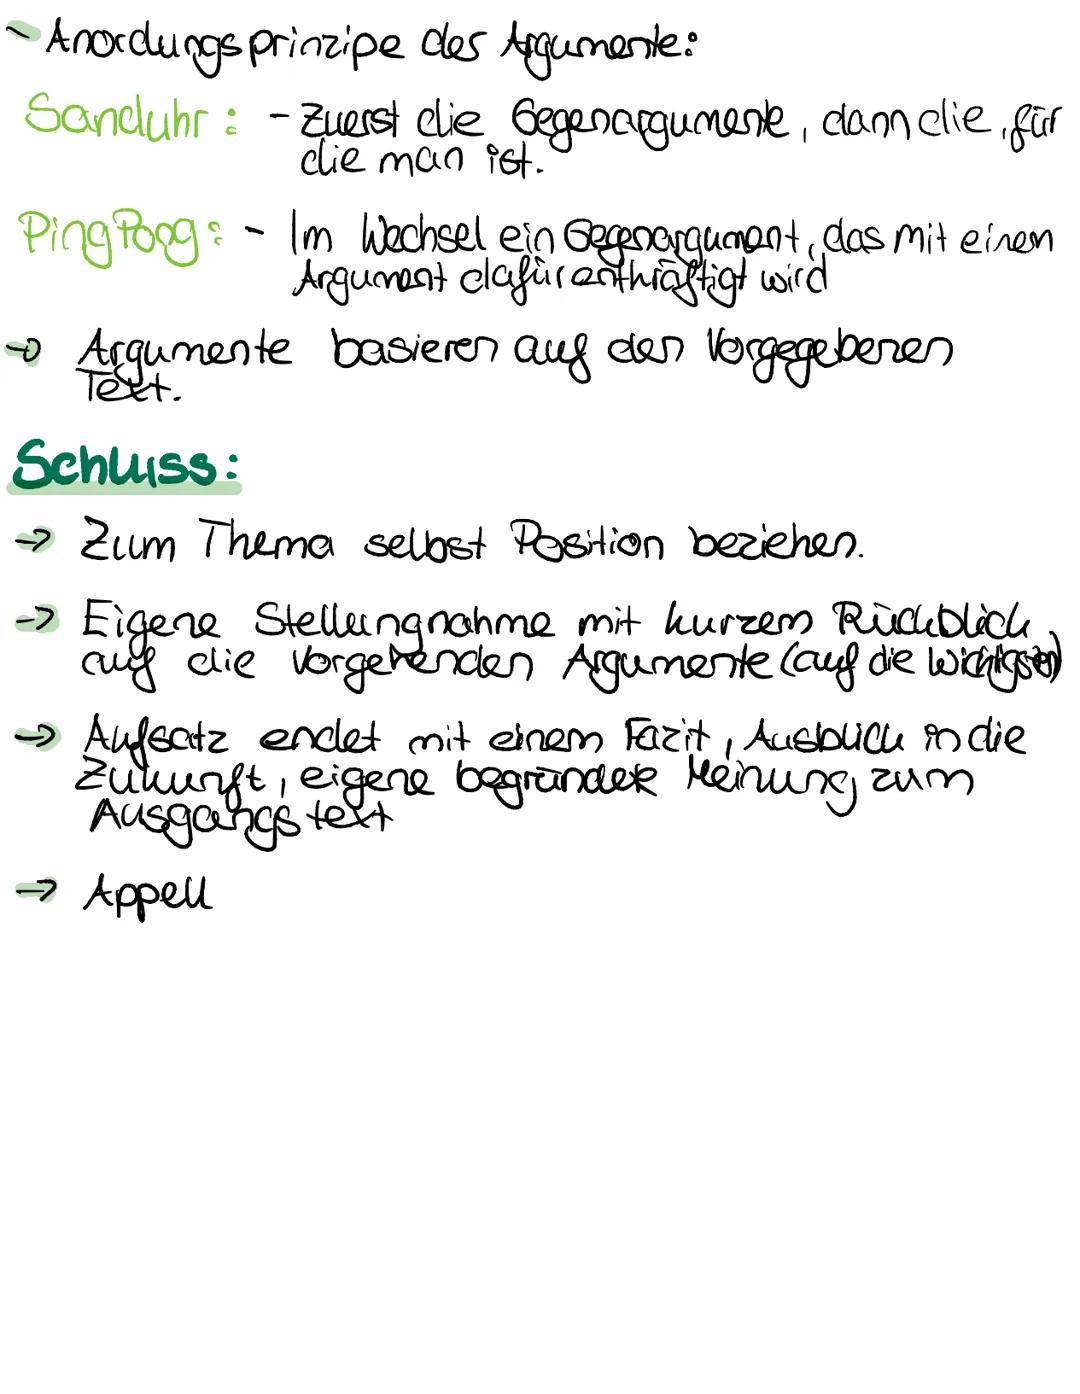 - Anordungsprinzipe der Argumente:
Sanduhr: - Zuerst die Gegenargumente, dann die, für
die man ist.
PingPong: - Im Wechsel ein Gegenargument, das mit einem
Argument dafür enthräftigt wird
→ Argumente basieren auf den Vorgegebenen
Text.
Schluss:
→ Zum Thema selbst Position beziehen.
→ Eigene Stellungnahme mit kurzem Rückblick
auf die Vorgehenden Argumente (auf die wichigsten)
→ Aufsatz endet mit einem Fazit, Ausblick in die
Zukunft, eigene begründete Meinung zum
Ausgangstext
→ Appell